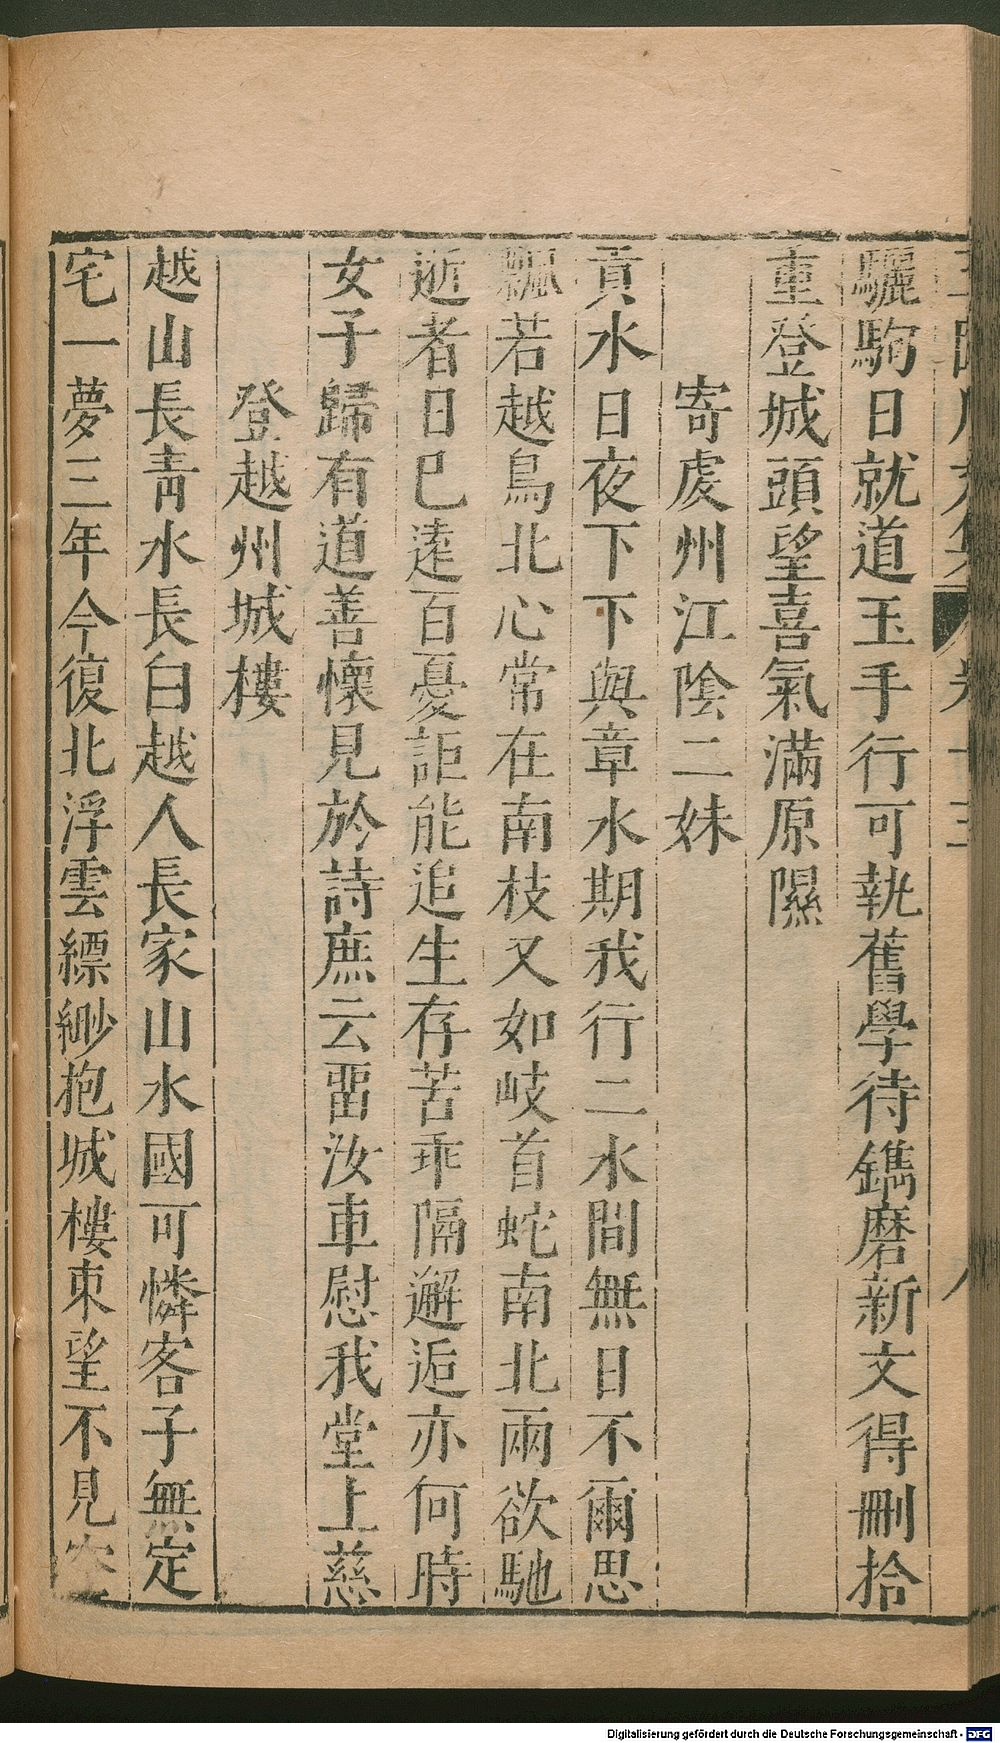 驪駒日就道玉手行可執舊學待鐫磨新文得刪拾
重登城頭望喜氣滿原隰
寄虔州江陰二妹
貢水日夜下下與章水期我行二水間無日不爾思
飄若越鳥北心常在南枝又如岐首蛇南北兩欲馳
逝者日已遠百憂詎能追生存苦乖隔邂逅亦何時
女子歸有道善懷見於詩庶云畱汝車慰我堂上慈
登越州城樓
越山長靑水長白越人長家山水國可憐客子無定
宅一夢三年今復北浮雲縹緲抱城樓東望不見
Digitalisierung gefördert durch die Deutsche Forschungsgemeinschaft - DFG